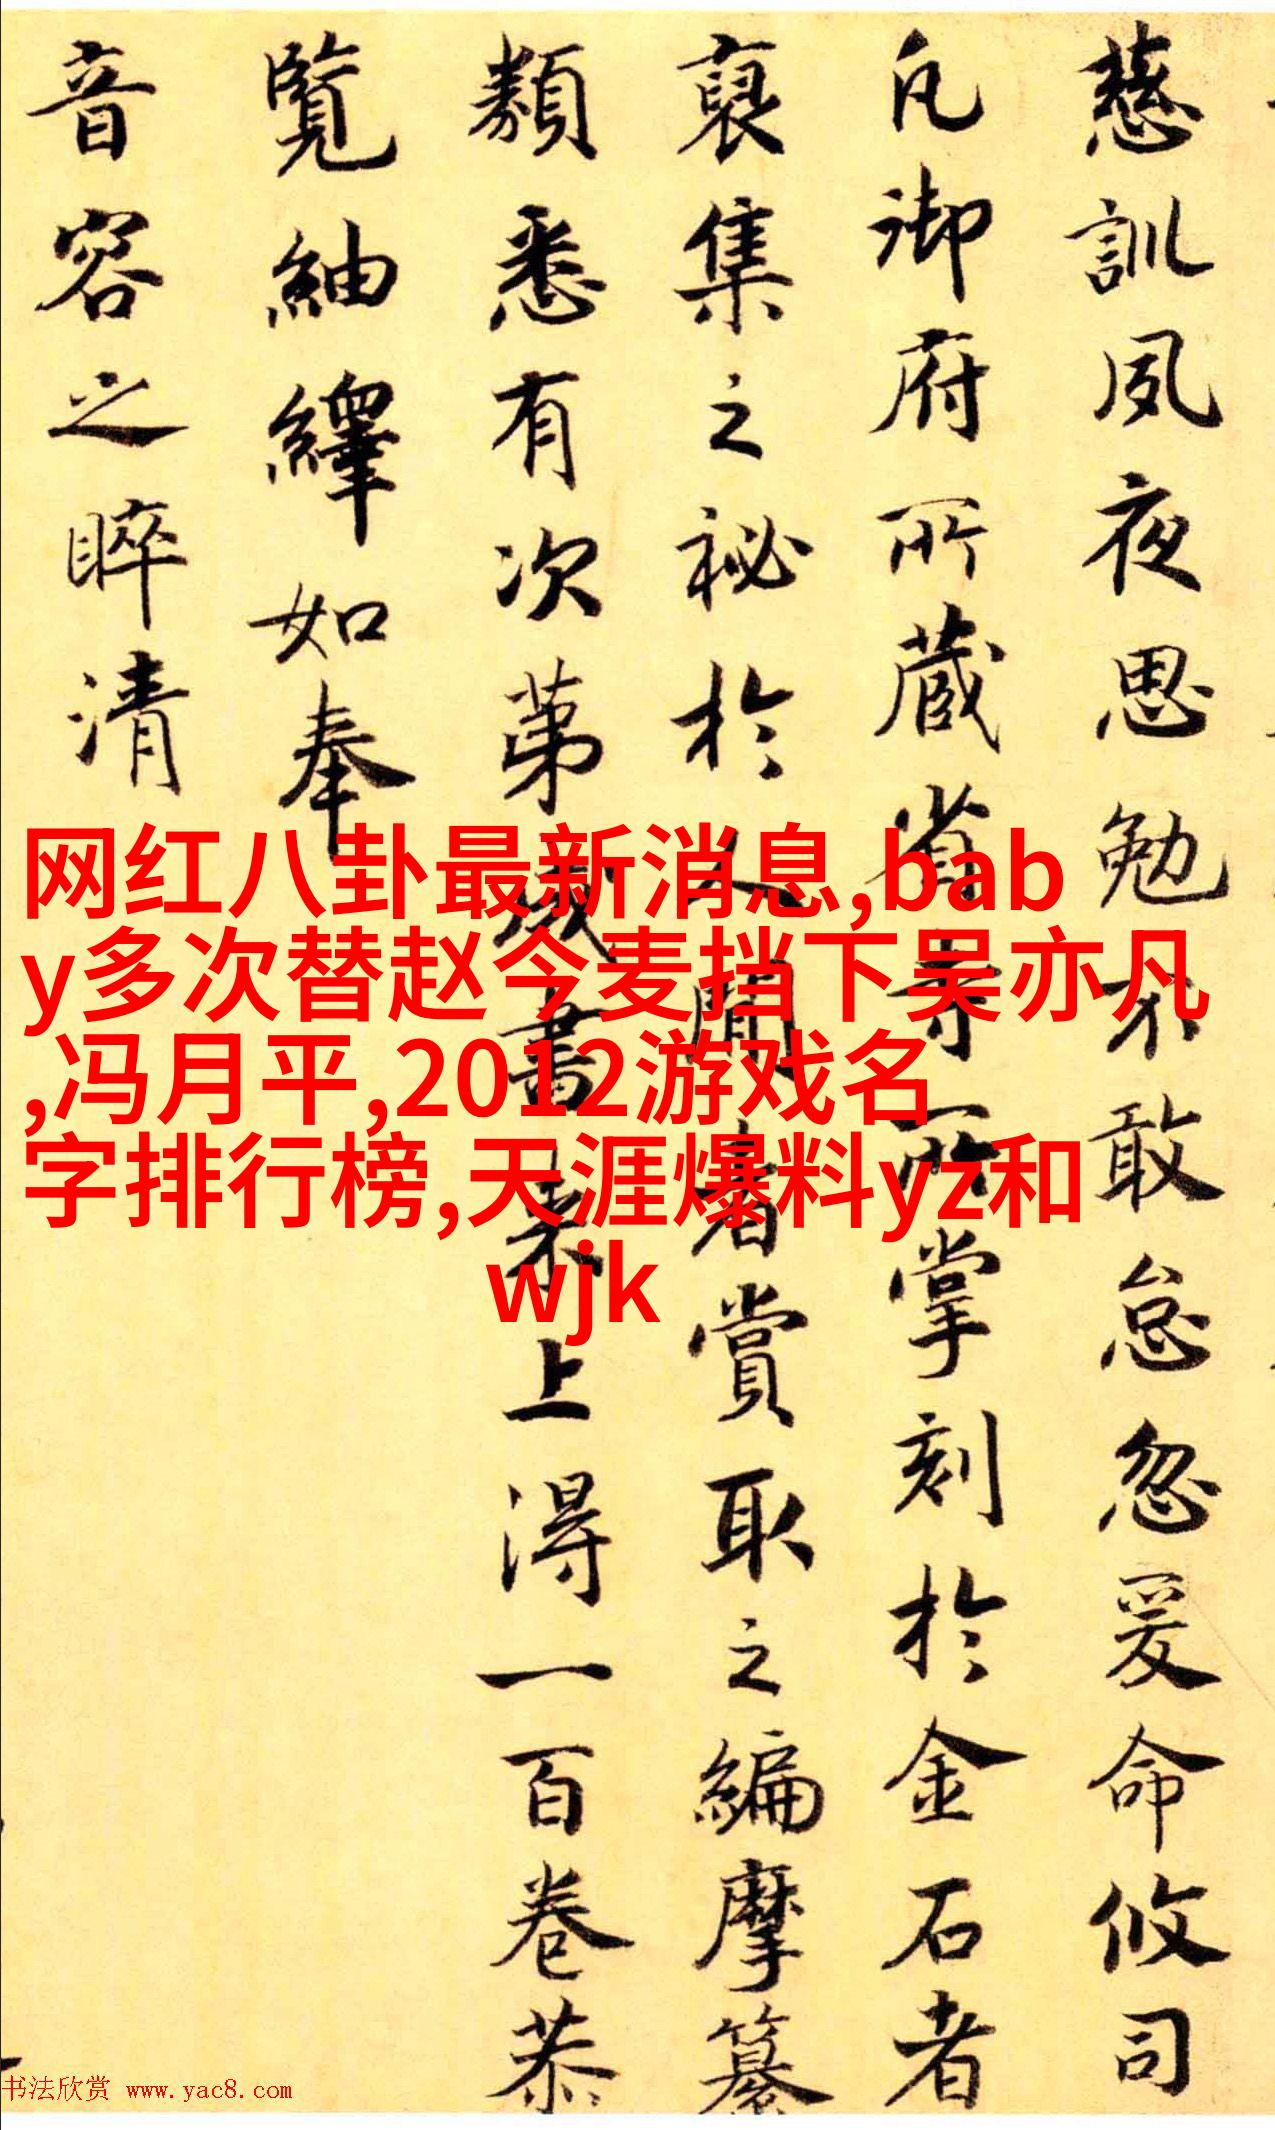 慈訓夙夜思勉不敢怠忽爰命攸司
凡御府所藏省寺所掌刻於金石者
裒集之祕於人間者賞取之編摩纂
類悉有次第成書來上得一百卷恭
覽紬繹如奉
音容之睟清
网红八卦最新消息,bab
y多次替赵今麦挡下吴亦凡
,冯月平,2012游戏名
字排行榜,天涯爆料yz和
wjk
书法欣赏 www.yac8.com